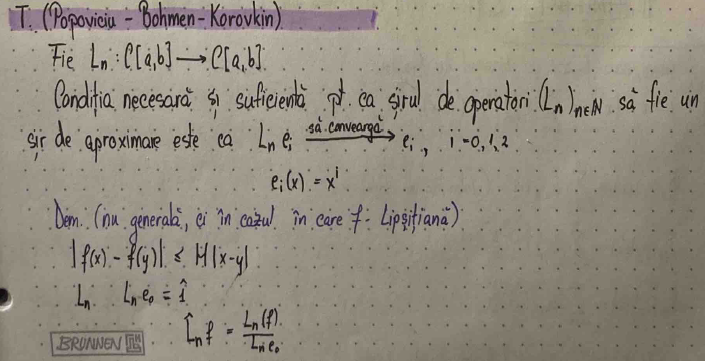 T. (Popoviciu - Bohmen - Korovkin)
Fie Lₙ : C[a,b] → C[a,b]
Condiția necesară și suficientă pt ca șirul de operatori (Lₙ)ₙ∈ℕ să fie un
șir de aproximare este ca Lₙ eᵢ să conveargă → eᵢ, i=0,1,2
eᵢ(x) = xⁱ
Dem. (nu generală, ci în cazul în care f - Lipșițiană)
|f(x) - f(y)| ≤ M|x-y|
Lₙ Lₙ e₀ = 1̂
L̂ₙ f = Lₙ(f) / Lₙ e₀
BRUNNEN